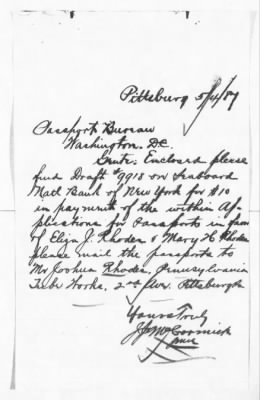 Pittsburg 5/4/87
Passport Bureau
Washington. D.C.
Gents: Enclosed please
find Draft #9918 on Seaboard
Natl Bank of New York for $10
in payment of the within Ap-
plications for Passports in favor
of Eliza J. Rhodes & Mary H. Rhodes
please mail the passports to
Mr Joshua Rhodes, Pennsylvania
Tube Works. 2nd Ave. Pittsburgh
Yours Truly
McCormick